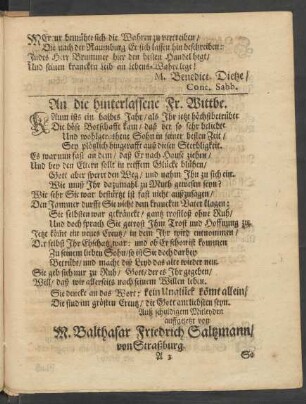 MEr nur bemühte sich die Wahren zu vertreiben/
Die nach der Naumburg Er sich lassen hin beschreiben:
Indes Herr Brummer hier den besten Handel hegt/
Und seinen krancken Leib an Lebens-Wasser legt!
M. Benedict. Dietze/
Conr. Sabb.
An die hinterlassene Fr. Wittbe.
KAum ists ein halbes Jahr/ als Ihr jetzt höchstbetrübte
Die böse Botschafft kam/ daß der so sehr beliebt
Und wohlgerathene Sohn in seiner besten Zeit/
Sey plötzlich hingerafft aus dieser Sterbligkeit.
Es war nun fast an dem/ daß Er nach Hause ziehen/
Und bey den Eltern solte in vollem Glücke blühen/
Gott aber sperrt den Weg/ und nahm Ihn zu sich ein.
Wie muß Ihr dazumahl zu Muth gewesen seyn?
Wie sehr Sie war bestürtzt ist fast nicht auszusagen/
Den Jammer durfft Sie nicht dem krancken Vater klagen:
Sie selbsten war gekränckt/ gantz trostloß ohne Ruh/
Und doch sprach Sie getrost Ihm Trost und Hoffnung zu.
Jetzt kömt ein neues Creutz/ in dem Ihr wird entnommen/
Der selbst Ihr Ehschatz war: und ob Er schon ist kommen
Zu seinem lieben Sohn/ so ist Sie doch darbey
Betrübt/ und macht diß Leyd das alte wieder neu.
Sie geb sich nur zu Ruh/ Gott/ der es Ihr gegeben/
Will/ daß wir allerseits nach seinem Willen leben.
Sie dencke an das Wort: kein Unglück kömt allein/
Die sind im grösten Creutz/ die Gott am liebsten seyn.
Aus schuldigem Mitleyden
auffgesetzt von
M. Balthasar Friedrich Saltzmann/
von Straßburg.
A 3 So